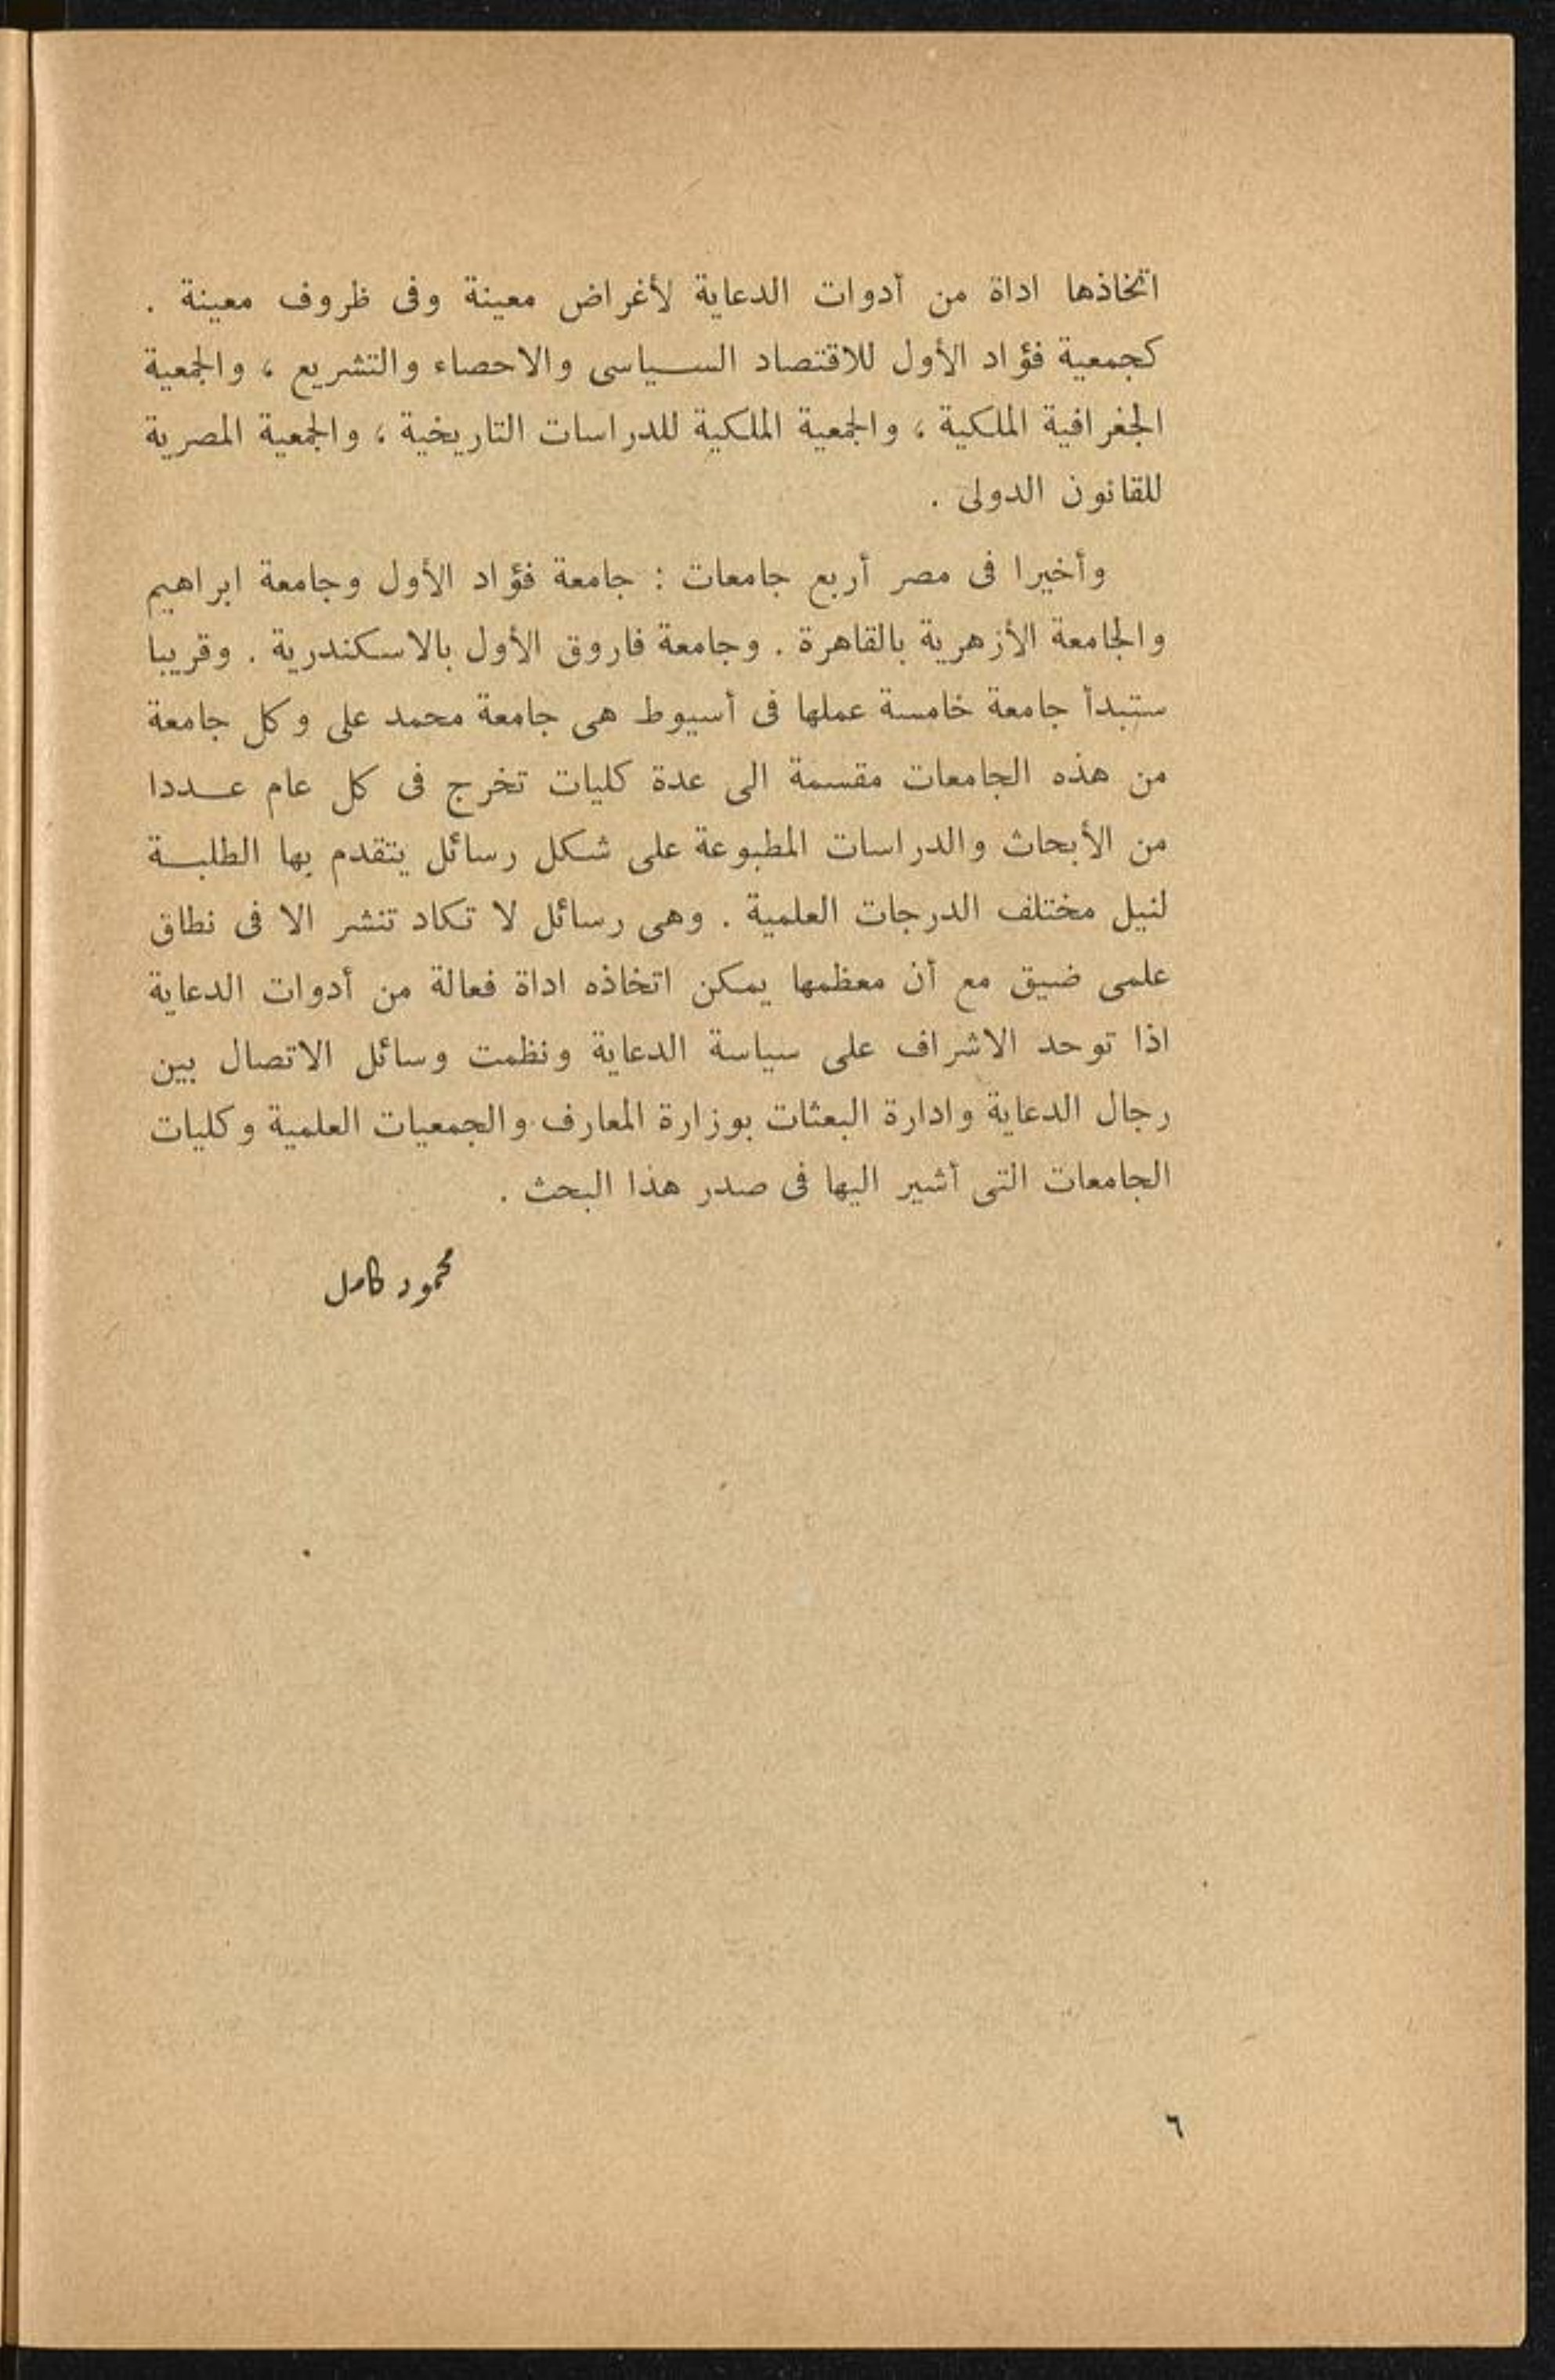 اتخاذها اداة من أدوات الدعاية لأغراض معينة وفى ظروف معينة .
كجمعية فؤاد الأول للاقتصاد السياسى والاحصاء والتشريع ، والجمعية
الجغرافية الملكية ، والجمعية الملكية للدراسات التاريخية ، والجمعية المصرية
للقانون الدولى .
وأخيرا فى مصر أربع جامعات : جامعة فؤاد الأول وجامعة ابراهيم
والجامعة الأزهرية بالقاهرة . وجامعة فاروق الأول بالاسكندرية . وقريبا
ستبدأ جامعة خامسة عملها فى أسيوط هى جامعة محمد على وكل جامعة
من هذه الجامعات مقسمة الى عدة كليات تخرج فى كل عام عددا
من الأبحاث والدراسات المطبوعة على شكل رسائل يتقدم بها الطلبة
لنيل مختلف الدرجات العلمية . وهى رسائل لا تكاد تنشر الا فى نطاق
علمى ضيق مع أن معظمها يمكن اتخاذه اداة فعالة من أدوات الدعاية
اذا توحد الاشراف على سياسة الدعاية ونظمت وسائل الاتصال بين
رجال الدعاية وادارة البعثات بوزارة المعارف والجمعيات العلمية وكليات
الجامعات التى أشير اليها فى صدر هذا البحث .
محمود كامل
٦